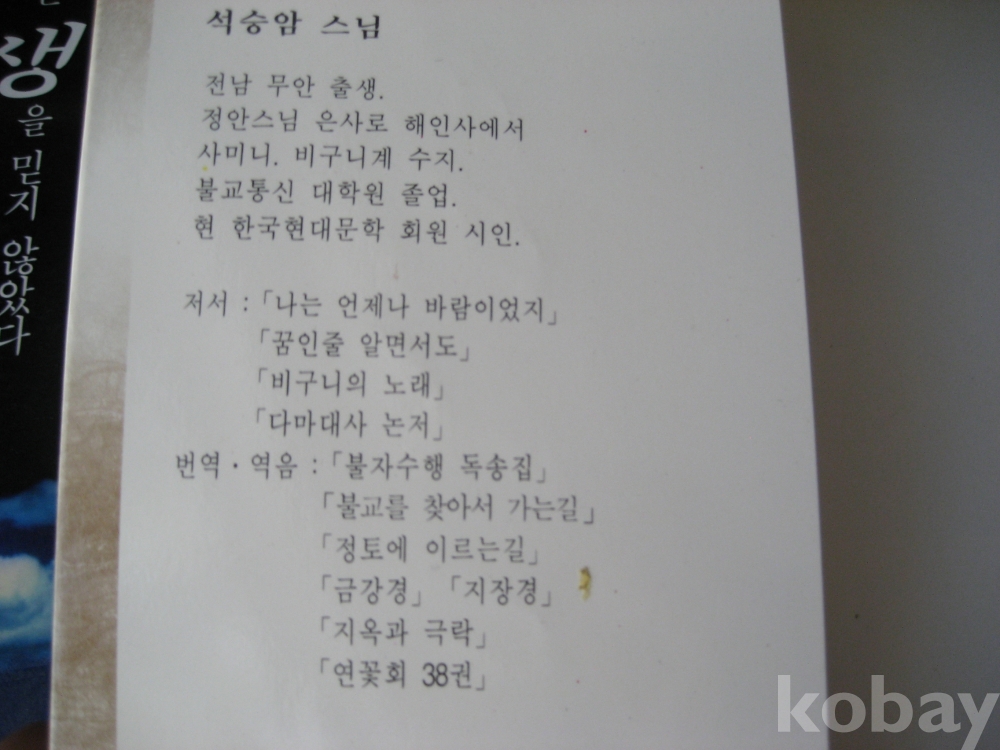 생
을
믿지
않았다
석승암 스님
전남 무안 출생.
정안스님 은사로 해인사에서
사미니. 비구니계 수지.
불교통신 대학원 졸업.
현 한국현대문학 회원 시인.
저서 : 「나는 언제나 바람이었지」
「꿈인줄 알면서도」
「비구니의 노래」
「다마대사 논저」
번역·역음 : 「불자수행 독송집」
「불교를 찾아서 가는길」
「정토에 이르는길」
「금강경」 「지장경」
「지옥과 극락」
「연꽃회 38권」
kobay